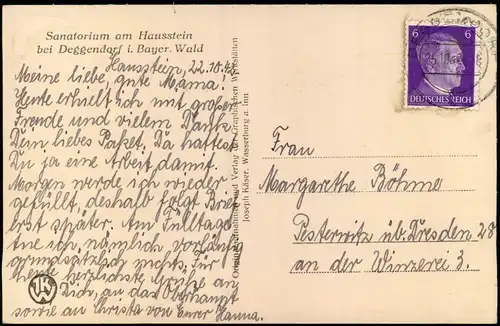 Sanatorium am Hausstein
bei Deggendorf i. Bayer. Wald
Hausstein, 22.10.42
Meine liebe, gute Mama!
Heute erhielt ich mit großer
Freude und vielem Dank
Dein liebes Paket. Da hattest
Du ja eine Arbeit damit.
Morgen werde ich wieder
gefüllt, deshalb folgt Brief
erst später. Am Fülltag
tue ich nämlich vorläufig
grundsätzlich nichts. Für
heute herzlichste Grüße an
Dich, an das Oberhaupt
sowie an Christa von Eurer Hanna.
Originalaufnahmen und Verlag der Graphischen Werkstätten
Joseph Käser, Wasserburg a. Inn
6 6
DEUTSCHES REICH
Frau
Margarethe Böhme
Pesterwitz üb. Dresden 28
an der Winzerei 3.